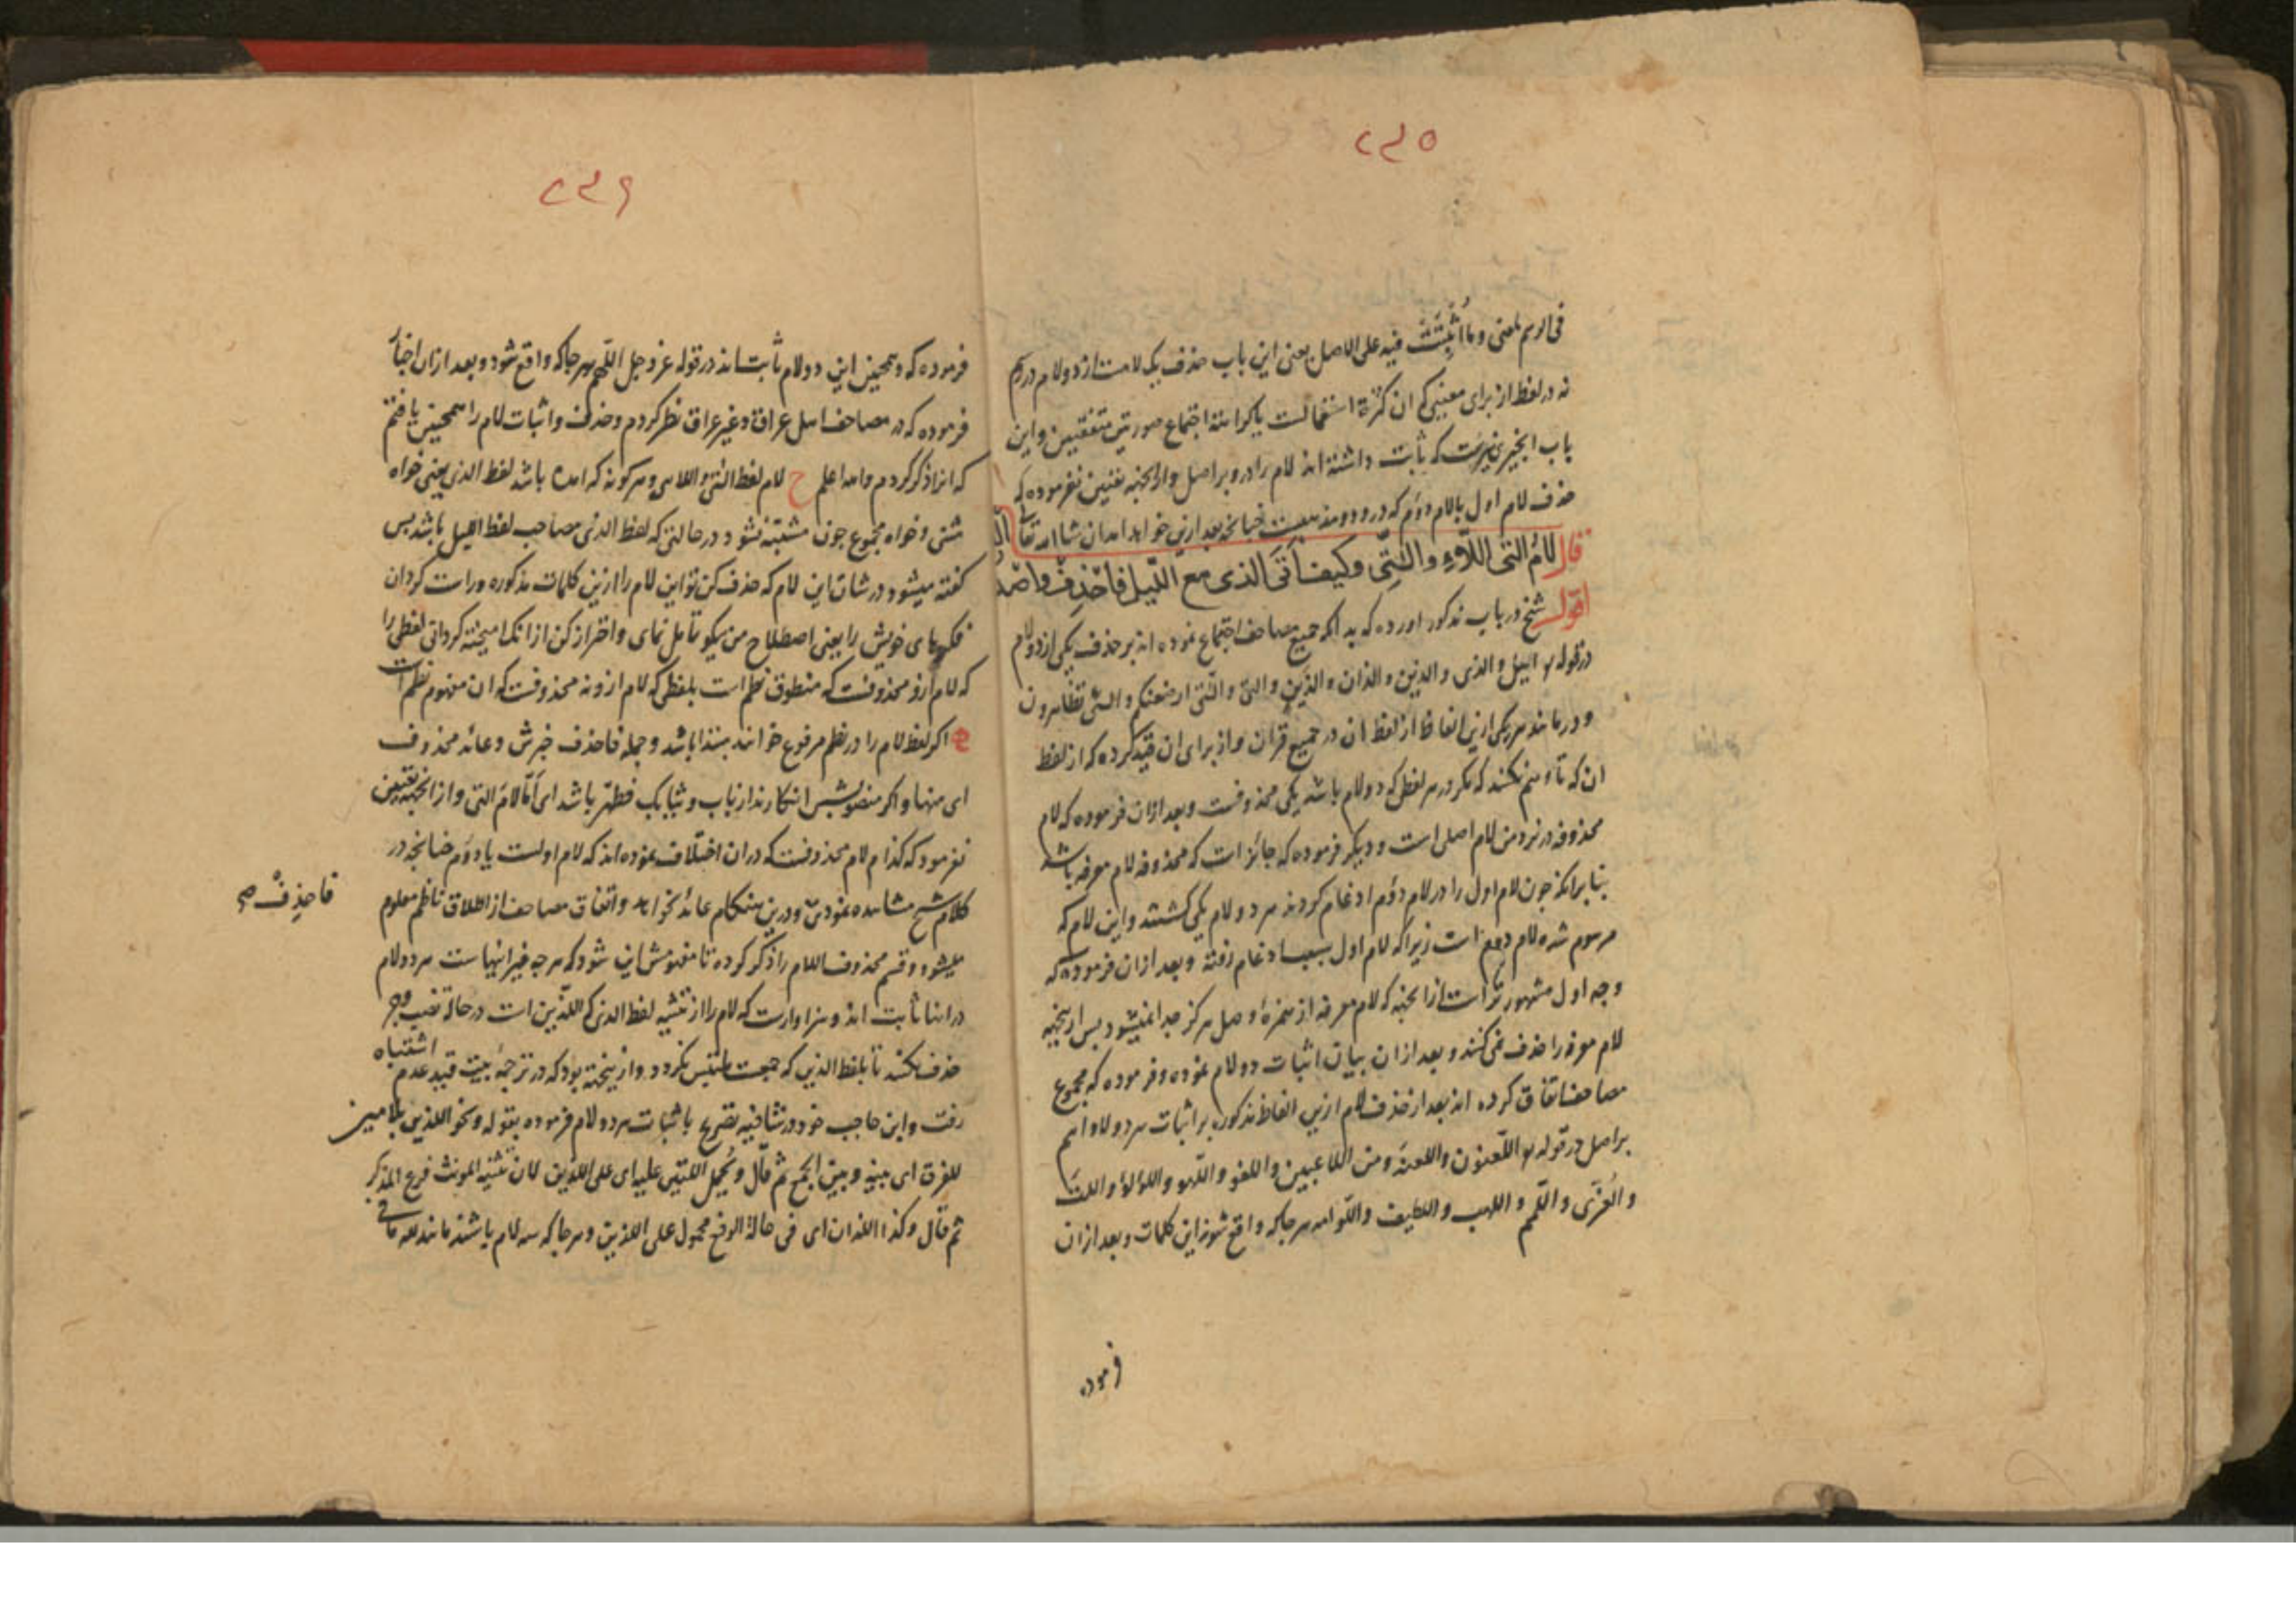 ۲۳۵
فی الرسم لمعنی وما أُثبِتَتْ فیه علی الاصل یعنی این باب حذف یک لامست از دو لام در رسم
نه در لفظ از برای معنیی که ان کثرة استعمالست یا کراهة اجتماع صورتین متفقتین واین
باب انچیزیست که ثابت داشته اند لام را درو بر اصل واز انجهة تعیین نفرموده که
حذف لام اول یا لام دوّم که درو دو مذهبست چنانچه بعد ازین خواهد امد ان شا الله تعالی
قال لامُ التی اللآءِ والّتِی وکیف اَتَی الذی مع اللّیل فاحْذِفْ
اقول شیخ در باب مذکور اورده که بدانکه جمیع مصاحف اجتماع نموده اند بر حذف یکی از دو لام
در قوله الیل والذی والذین والذان والذَین والتی والّتی ارضعنکم والّئی تظاهرون
ودر مانند هر یکی ازین الفاظ از لفظ ان در جمیع قران واز برای ان قید کرده که از لفظ
ان که تا وهم نکنند که مگر در هر لفظی که دو لام باشد یکی محذوفست وبعد ازان فرموده که لام
محذوفه در نزد من لام اصلی است ودیگر فرموده که جائز است که محذوفه لام معرفه باشد
بنا برانکه چون لام اول را در لام دوّم ادغام کردند هر دو لام یکی گشتند واین لام که
مرسوم شده لام دوم است زیرا که لام اول بسبب ادغام رفته وبعد ازان فرموده که
وجه اول مشهورتر است از انجهة که لام معرفه از همزهٔ وصل هرگز جدا نمیشود پس ازینجهة
لام معرفه را حذف نمی کنند وبعد ازان بیان اثبات دو لام نموده وفرموده که مجموع
مصاحف اتفاق کرده اند بعد از حذف لام ازین الفاظ مذکوره بر اثبات هر دو لام
بر اصل در قوله اللّعنون واللعنة ومن اللاعبین واللغو واللّهو واللؤلؤ واللت
والعُزّی واللّمم واللهب واللطیف واللّوامه هر جا که واقع شوند این کلمات وبعد ازان
فرموده
۲۳۶
فرموده که وهمچنین این دو لام ثابت اند در قوله عز وجل اللّهم هر جا که واقع شود وبعد ازان اخبار
فرموده که در مصاحف اهل عراق وغیر عراق نظر کردم وحذف واثبات لام را همچنین یافتم
که انرا ذکر کردم والله اعلم ح لام لفظ الّتی واللای وهر گونه که امده باشد لفظ الذی یعنی خواه
مثنی وخواه مجموع چون مشتبه نشود در حالتی که لفظ الذی مصاحب لفظ الیل باشد پس
گفته میشود در شان این لام که حذف کن تو این لام را ازین کلمات مذکوره وراست گردان
فکرهای خویش را یعنی اصطلاح من نیکو تامل نمای واحتراز کن از انک امیخته گردانی لفظی را
که لام ازو محذوفست که منطوق نظم است بلفظی که لام ازو نه محذوفست که ان مفهوم نظم است
اگر لفظ لام را در نظم مرفوع خوانند مبتدا باشد وجمله فاحذف خبرش وعائد محذوف
ای منها واگر منصوبش انگارند از باب وثیابک فطهّر باشد ای اَمّا لامَ التی واز انجهة تعیین
نفرمود که کدام لام محذوفست که دران اختلاف نموده اند که لام اولست یا دوّم چنانچه در
کلام شیخ مشاهده نمودی ودرین هنگام عائد نخواهد واتفاق مصاحف از اطلاق ناظم معلوم
میشود وقسم محذوف اللام را ذکر کرده تا مفهومش این شود که هر چه غیر اینهاست هر دو لام
در انها ثابت اند وسزاوارست که لام را از تثنیه لفظ الذی که اللذین است در حالة نصب وجر
حذف نکنند تا بلفظ الذین که جمعست ملتبس نگردد وازینجهة بود که در ترجمهٔ بیت قید عدم اشتباه
رفت وابن حاجب خود در شافیه تصریح باثبات هر دو لام فرموده بقوله ونحو اللذین بلامین
للفرق ای بینه وبین الجمع ثم قال ویُحمل اللتین علیه ای علی اللذین لان تثنیه المونث فرع المذکر
ثم قال وکذا اللذان ای فی حالة الرفع محمول علی اللذین وهر جا که سه لام باشند مانند لله ما فی
فاحذِفْ صح